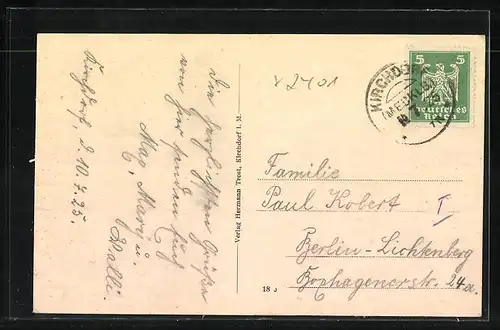 Kirchdorf, d. 10.7.25.
Die herzlichsten Grüße
von hier senden Euch
Max, Marg u.
Walli.
Verlag Hermann Trost, Kirchdorf i. M.
18 J
v2401
KIRCHDO
(MECKLB
5 5
Deutsches
Reich
Familie
Paul Kobert
T
Berlin-Lichtenberg
Boxhagenerstr. 24a.